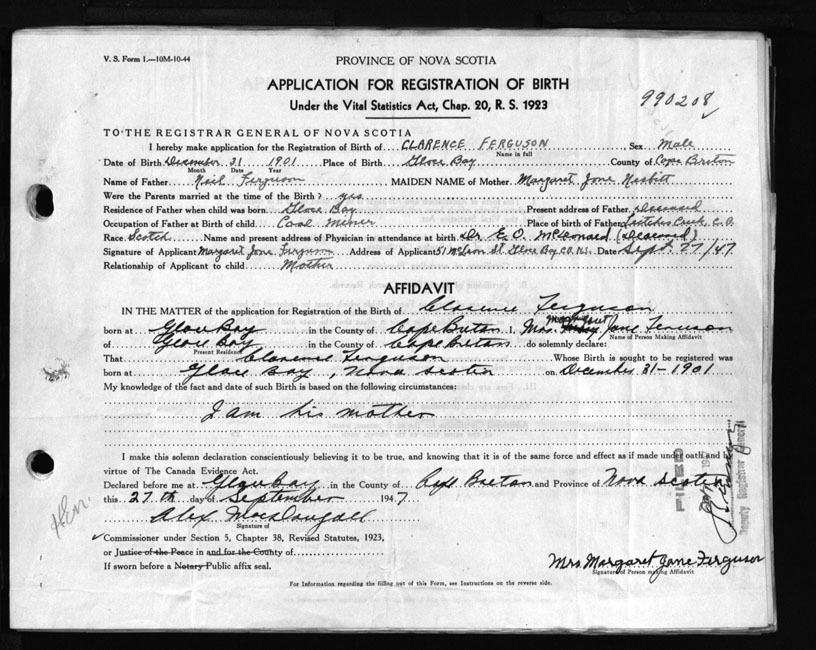 V. S. Form 1.—10M-10-44
PROVINCE OF NOVA SCOTIA
APPLICATION FOR REGISTRATION OF BIRTH
Under the Vital Statistics Act, Chap. 20, R. S. 1923
990208
TO THE REGISTRAR GENERAL OF NOVA SCOTIA
I hereby make application for the Registration of Birth of CLARENCE FERGUSON Sex Male
Name in full
Date of Birth December 31 1901 Place of Birth Glace Bay County of Cape Breton
Month Date Year
Name of Father Neil Ferguson MAIDEN NAME of Mother Margaret Jane Nesbitt
Were the Parents married at the time of the Birth? yes
Residence of Father when child was born Glace Bay Present address of Father deceased
Occupation of Father at Birth of child Coal Miner Place of birth of Father Leitches Creek, C.B.
Race Scotch Name and present address of Physician in attendance at birth Dr E. O. McDonald (Deceased)
Signature of Applicant Margaret Jane Ferguson Address of Applicant 51 McLean St. Glace Bay C.B. N.S. Date Sept 27/47
Relationship of Applicant to child Mother
AFFIDAVIT
IN THE MATTER of the application for Registration of the Birth of Clarence Ferguson
born at Glace Bay in the County of Cape Breton I, Mrs. Margaret Jane Ferguson
Name of Person Making Affidavit
of Glace Bay in the County of Cape Breton do solemnly declare:
Present Residence
That Clarence Ferguson Whose Birth is sought to be registered was
born at Glace Bay, Nova Scotia on December 31-1901
My knowledge of the fact and date of such Birth is based on the following circumstances:
I am his mother
I make this solemn declaration conscientiously believing it to be true, and knowing that it is of the same force and effect as if made under oath and by
virtue of The Canada Evidence Act.
Declared before me at Glace Bay in the County of Cape Breton and Province of Nova Scotia
this 27th day of September 1947
Alex MacDougall
Signature of
Commissioner under Section 5, Chapter 38, Revised Statutes, 1923,
or Justice of the Peace in and for the County of
If sworn before a Notary Public affix seal.
Mrs Margaret Jane Ferguson
Signature of Person making Affidavit
For Information regarding the filling out of this Form, see Instructions on the reverse side.
FILED
Deputy Registrar General